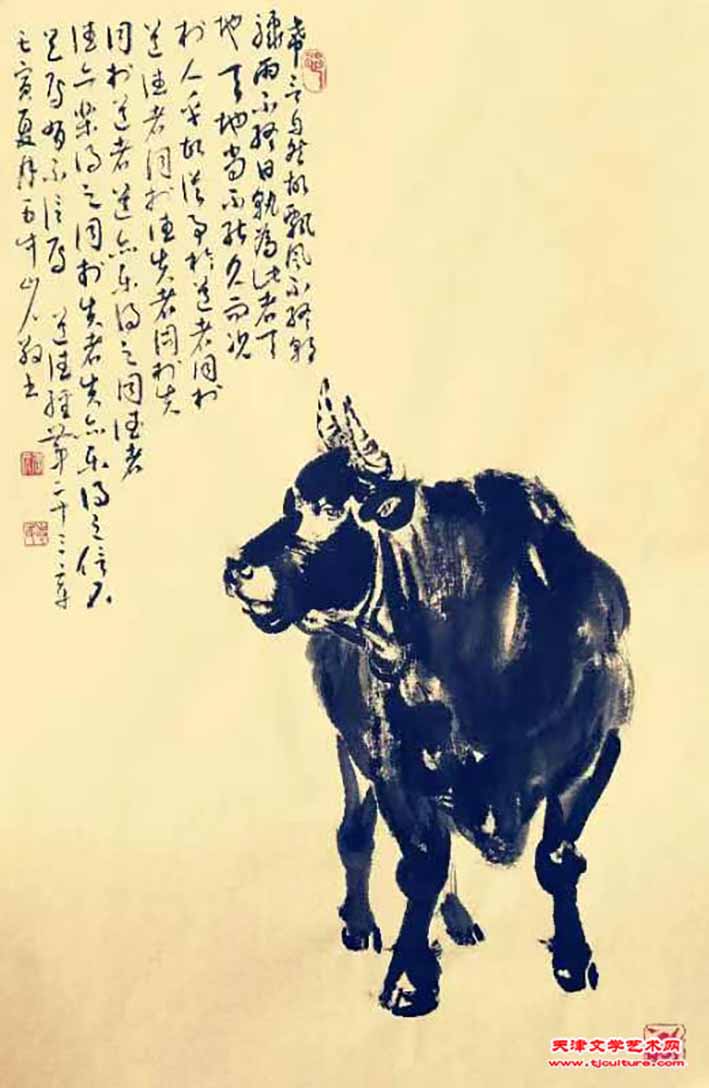 希言自然故飄風不終朝
驟雨不終日孰為此者天
地天地尚不能久而況
於人乎故從事於道者同於
道德者同於德失者同於失
同於道者道亦樂得之同德者
德亦樂得之同於失者失亦樂得之信不
足焉有不信焉 道德經第二十三章
壬寅夏月牛山人敬书
天津文学艺术网
www.tjculture.com